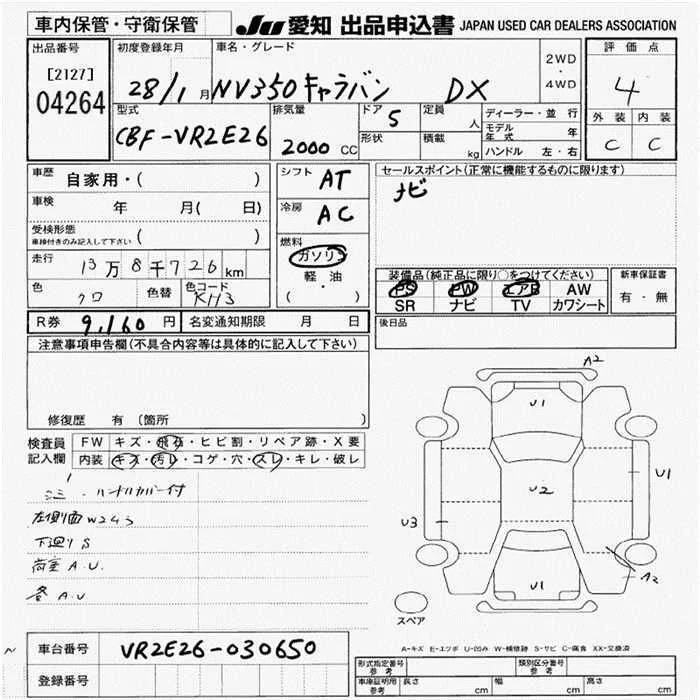 車内保管・守衛保管
JU 愛知 出品申込書 JAPAN USED CAR DEALERS ASSOCIATION
出品番号
[2127]
04264
初度登録年月
28/1月
車名・グレード
NV350キャラバン DX
2WD
・
4WD
評価点
4
外装 内装
C C
型式
CBF-VR2E26
排気量
2000 CC
ドア 5
形状
定員 人
積載 kg
ディーラー・並行
モデル年式 年
ハンドル 左・右
車歴 自家用・( )
車検 年 月( 日)
受検形態
車検付きのみ記入して下さい ( )
走行 13万8千726km
色 クロ 色替 色コード KH3
シフト AT
冷房 AC
燃料
ガソリン
・
軽油
( )
セールスポイント(正常に機能するものに限ります)
ナビ
装備品(純正品に限り○をつけてください)
PS PW エアB AW
SR ナビ TV カワシート
新車保証書
有・無
R券 9,160円 名変通知期限 月 日
後日品
注意事項申告欄(不具合内容等は具体的に記入して下さい)
修復歴 有 (箇所 )
検査員記入欄
FW キズ・飛石・ヒビ割・リペア跡・X要
内装 キズ・汚レ・コゲ・穴・スレ・キレ・破レ
ハンドルカバー付
左側面W2 U3
下廻りS
荷室A.U.
A.U
A2
U1
U2
U1
U3
U1
A2
スペア
A-キズ E-エクボ U-凹み W-補修跡 S-サビ C-腐食 XX-交換済
車台番号 VR2E26-030650
登録番号
形式指定番号 参考
類別区分番号 参考
車庫証明用 参考 長さ cm 幅 cm 高さ cm